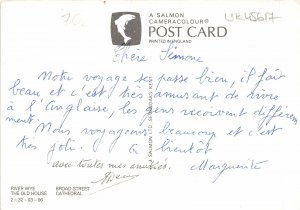 10c
A SALMON
CAMERACOLOUR®
POST CARD
PRINTED IN ENGLAND
Chère Simone
Notre voyage se passe bien, il fait
beau et c'est très amusant de vivre
à l'Anglaise, les gens reçoivent differem
ment. Nous voyageons beaucoup et c'est
très joli. A bientôt
avec toutes mes amitiés. Marguerite
RIVER WYE
THE OLD HOUSE
2-32-03-06
BROAD STREET
CATHEDRAL